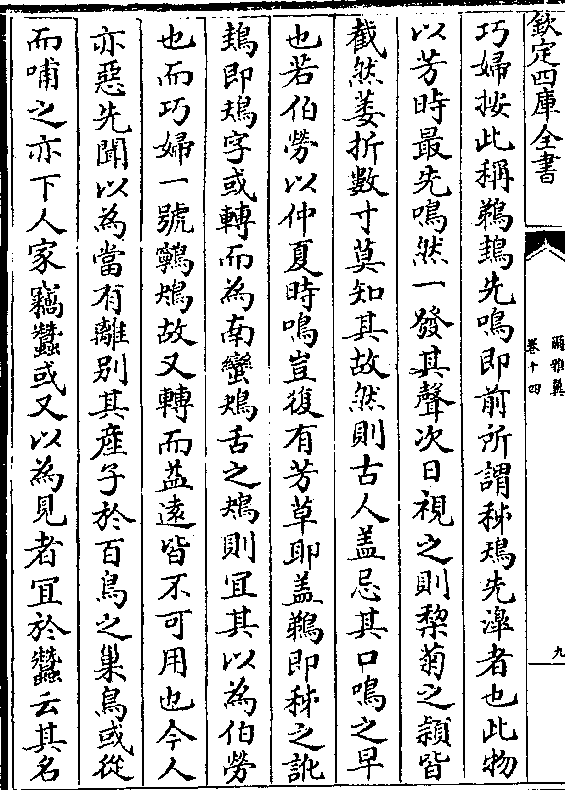 欽定四庫全書
爾雅翼
卷十四
九
巧婦按此稱鵜鴂先鳴即前所謂秭鴂先滜者也此物
以芳時最先鳴然一發其聲次日視之則棃菊之頴皆
截然萎折數寸莫知其故然則古人盖忌其口鳴之早
也若伯勞以仲夏時鳴豈復有芳草耶盖鵜即秭之訛
鴂即鴂字或轉而為南蠻鴂舌之鴂則宜其以為伯勞
也而巧婦一號鸋鴂故又轉而益逺皆不可用也今人
亦惡先聞以為當有離别其產子於百鳥之巢鳥或從
而哺之亦下人家竊蠶或又以為見者宜於蠶云其名